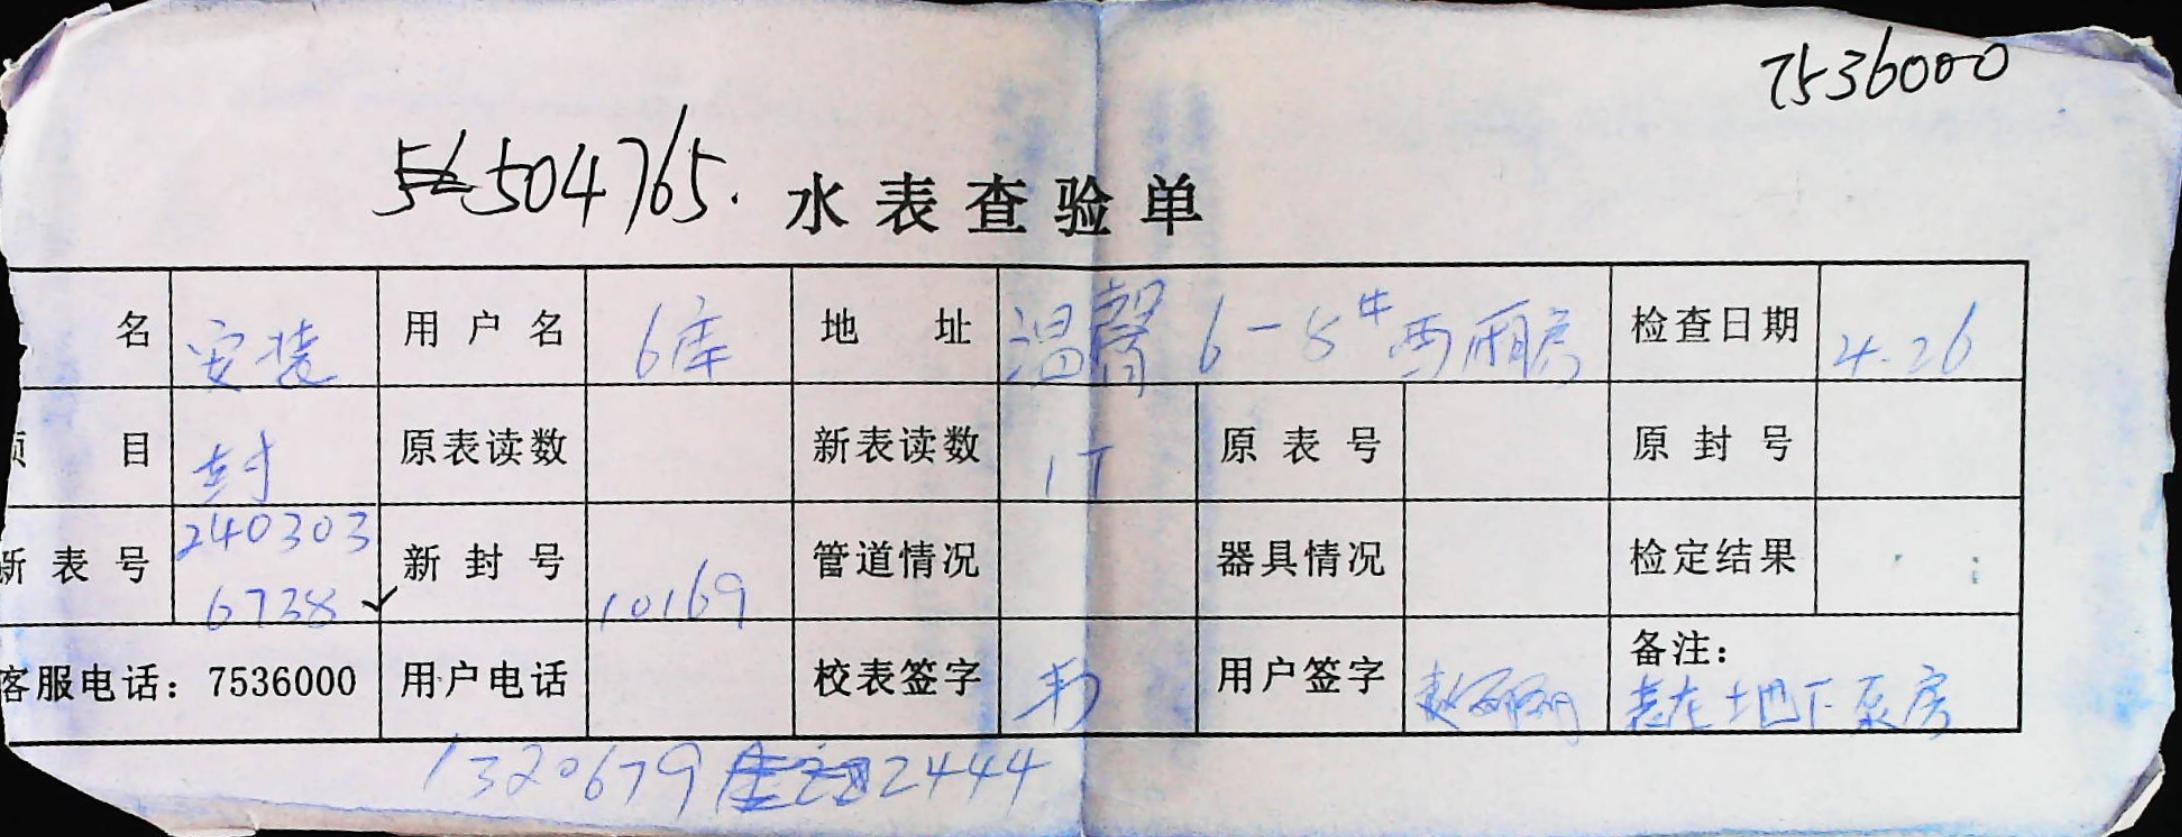 7536000
504765.
水表查验单
名 安装 用户名 6库 地址 温馨6-8# 西厢房 检查日期 4.26
项目 封 原表读数 新表读数 1T 原表号 原封号
新表号 2403036738 新封号 10169 管道情况 器具情况 检定结果
客服电话：7536000 用户电话 校表签字 用户签字 赵丽丽 备注：
表在地下泵房
1320679 2444